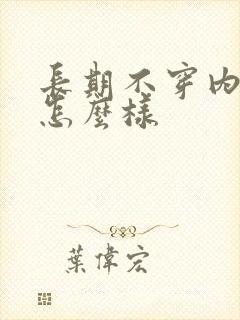 長期不穿内
怎麼樣
葉偉宏